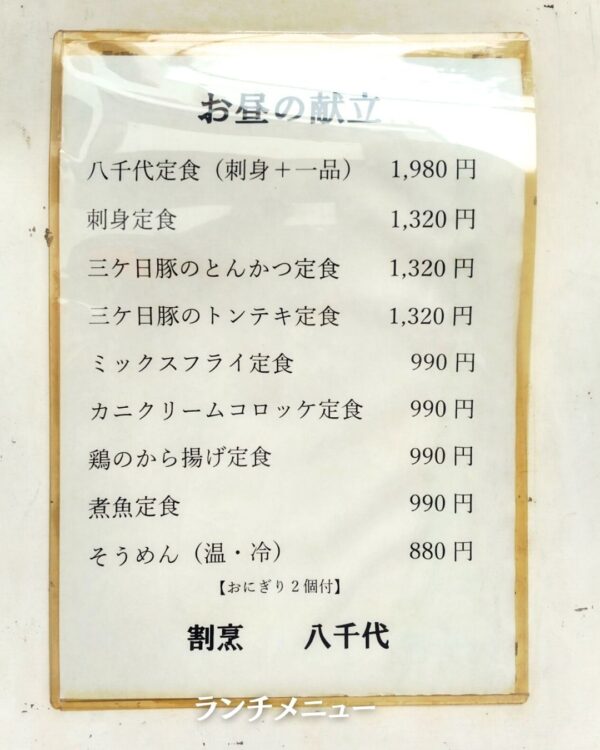 お昼の献立
八千代定食（刺身＋一品） 1,980 円
刺身定食 1,320 円
三ケ日豚のとんかつ定食 1,320 円
三ケ日豚のトンテキ定食 1,320 円
ミックスフライ定食 990 円
カニクリームコロッケ定食 990 円
鶏のから揚げ定食 990 円
煮魚定食 990 円
そうめん（温・冷） 880 円
【おにぎり２個付】
割烹 八千代
ランチメニュー